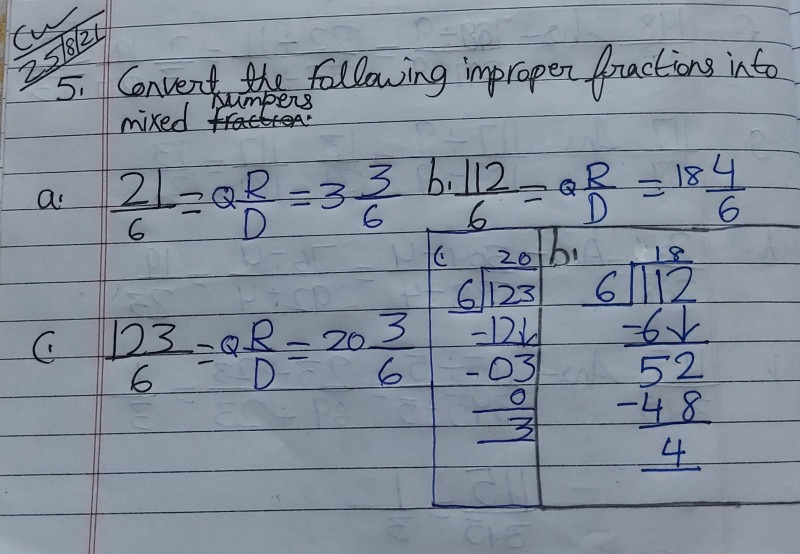 CW
25/8/21
5. Convert the following improper fractions into
numbers
mixed fraction.
a. 21/6 = Q R/D = 3 3/6 b. 112/6 = Q R/D = 18 4/6
c. 123/6 = Q R/D = 20 3/6
c. 20
6 123
-12↓
-03
0
3
b. 18
6 112
-6↓
52
-48
4